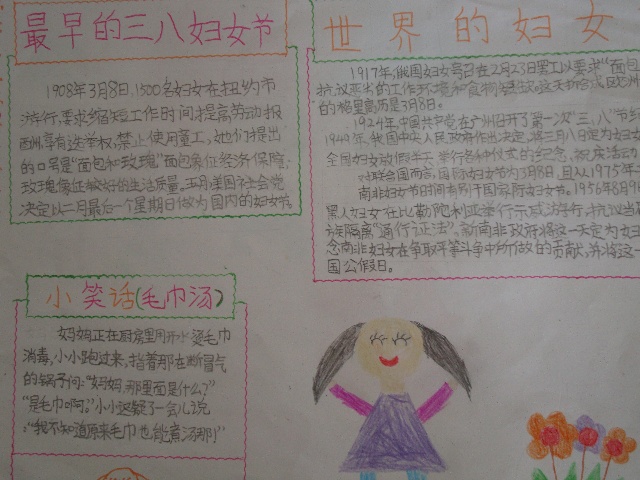 最早的三八妇女节
1908年3月8日,1500名妇女在纽约市
游行,要求缩短工作时间,提高劳动报
酬,享有选举权,禁止使用童工,她们提出
的口号是"面包和玫瑰"面包象征经济保障,
玫瑰象征较好的生活质量。五月,美国社会党
决定以二月最后一个星期日做为国内的妇女节。
世界的妇女
1917年,俄国妇女号召在2月23日罢工以要求"面包
抗议恶劣的工作环境和食物短缺。这天折合成欧洲
的格里高历是3月8日。
1924年,中国共产党在广州召开了第一次"三、八"节
1949年,我国中央人民政府作出决定,将三月八日定为妇女
全国妇女放假半天,举行各种仪式的纪念、祝庆活动
对联合国而言,国际妇女节为3月8日,且从1975年
南非妇女节时间有别于国际妇女节。1956年8月9
黑人妇女在比勒陀利亚举行示威游行,抗议当
族隔离"通行证法"。新南非政府将这一天定为妇
念南非妇女在争取平等斗争中所做的贡献,并将这一
国公假日。
小笑话(毛巾汤)
妈妈正在厨房里用开水烫毛巾
消毒,小小跑过来,指着那在断冒气
的锅子问:"妈妈,那里面是什么?"
"是毛巾啊。"小小迟疑了一会儿说
:"我不知道原来毛巾也能煮汤那!"